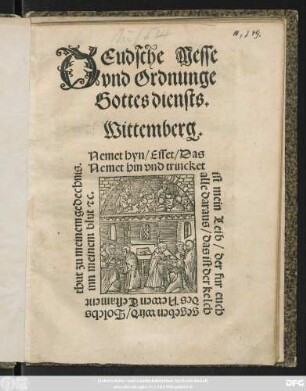 Deudsche Messe
vnd Ordnunge
Gottes diensts.
Wittemberg.
Nemet hyn / Esset / Das
ist mein Leib / der fur euch
gegeben wird / Solchs
thut zu meinem gedechnis.
Nemet hin vnd trincket
alle daraus / das ist der kelch
des Newen Testament
inn meinem blut ꝛc.